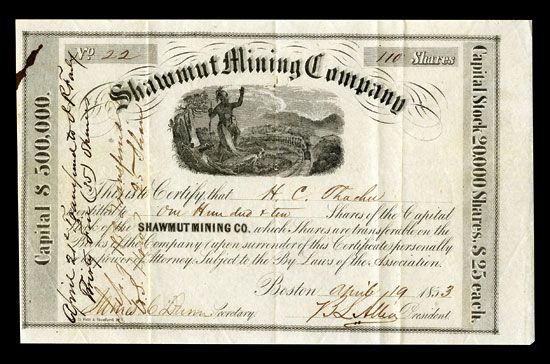 No. 22
110 Shares
Shawmut Mining Company
Capital $500,000.
Capital Stock 20,000 Shares, $25 each.
This is to Certify, that H. C. Thacher
is entitled to One Hundred & ten Shares of the Capital
Stock of the SHAWMUT MINING CO., which Shares are transferable on the
Books of the Company (upon surrender of this Certificate) personally
or by power of Attorney. Subject to the By Laws of the Association.
Boston April 19 1853
Secretary.
President
April